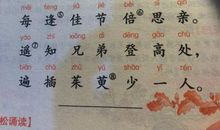 měi féng jiā jié bèi sī qīn
每逢⑥佳节倍⑥思亲。
yáo zhī xiōng dì dēng gāo chù
遥⑦知兄弟登高处,
biàn chā zhū yú shǎo yì rén
遍插茱萸⑧少一人。
松诵读】